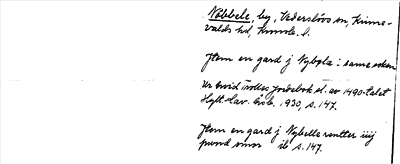 Nöbbele, by, Vederslövs sn, Kinne-
valds hd, Kronob. l.
Jtem en gard j Nybøla: same soken
Ur Arvid Trolles jordebok sl. av 1490-talet
Hylt.-Cav. 1930, s. 147.
Jtem en gard j Nybelle rentter iiij
pund smør ib s. 147.